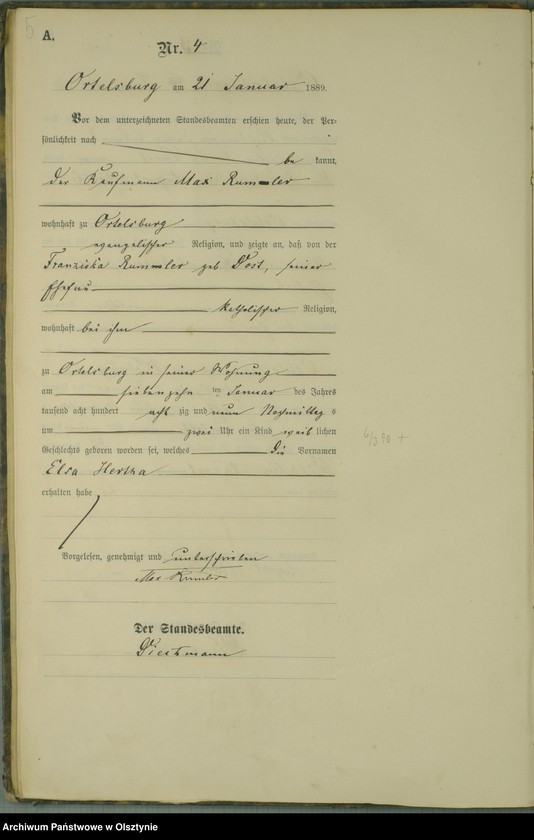 5
A.
Nr. 4
Ortelsburg am 21 Januar 1889.
Vor dem unterzeichneten Standesbeamten erschien heute, der Per-
sönlichkeit nach
be kannt,
der Kaufmann Max Rummler
wohnhaft zu Ortelsburg
evangelischer Religion, und zeigte an, daß von der
Franziska Rummler geb. Dost, seiner
Ehefrau
katholischer Religion,
wohnhaft bei ihm
zu Ortelsburg in seiner Wohnung
am siebenzehn ten Januar des Jahres
tausend acht hundert acht zig und neun Nachmittag s
um zwei Uhr ein Kind weib lichen
Geschlechts geboren worden sei, welches die Vornamen
Elsa Hertha
erhalten habe
Vorgelesen, genehmigt und unterschrieben
Max Rummler
Der Standesbeamte.
Archiwum Państwowe w Olsztynie